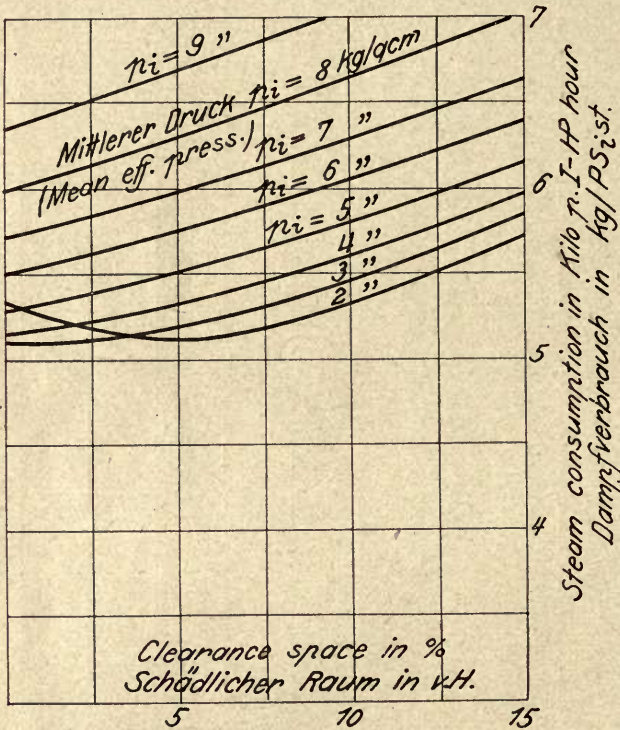 7
pi = 9 "
Mittlerer Druck pi = 8 kg/qcm
(Mean eff. press.) pi = 7 "
pi = 6 "
pi = 5 "
4 "
3 "
2 "
6
5
4
Steam consumption in Kilo p. I-HP hour
Dampfverbrauch in kg/PSi st.
Clearance space in %
Schädlicher Raum in v.H.
5 10 15